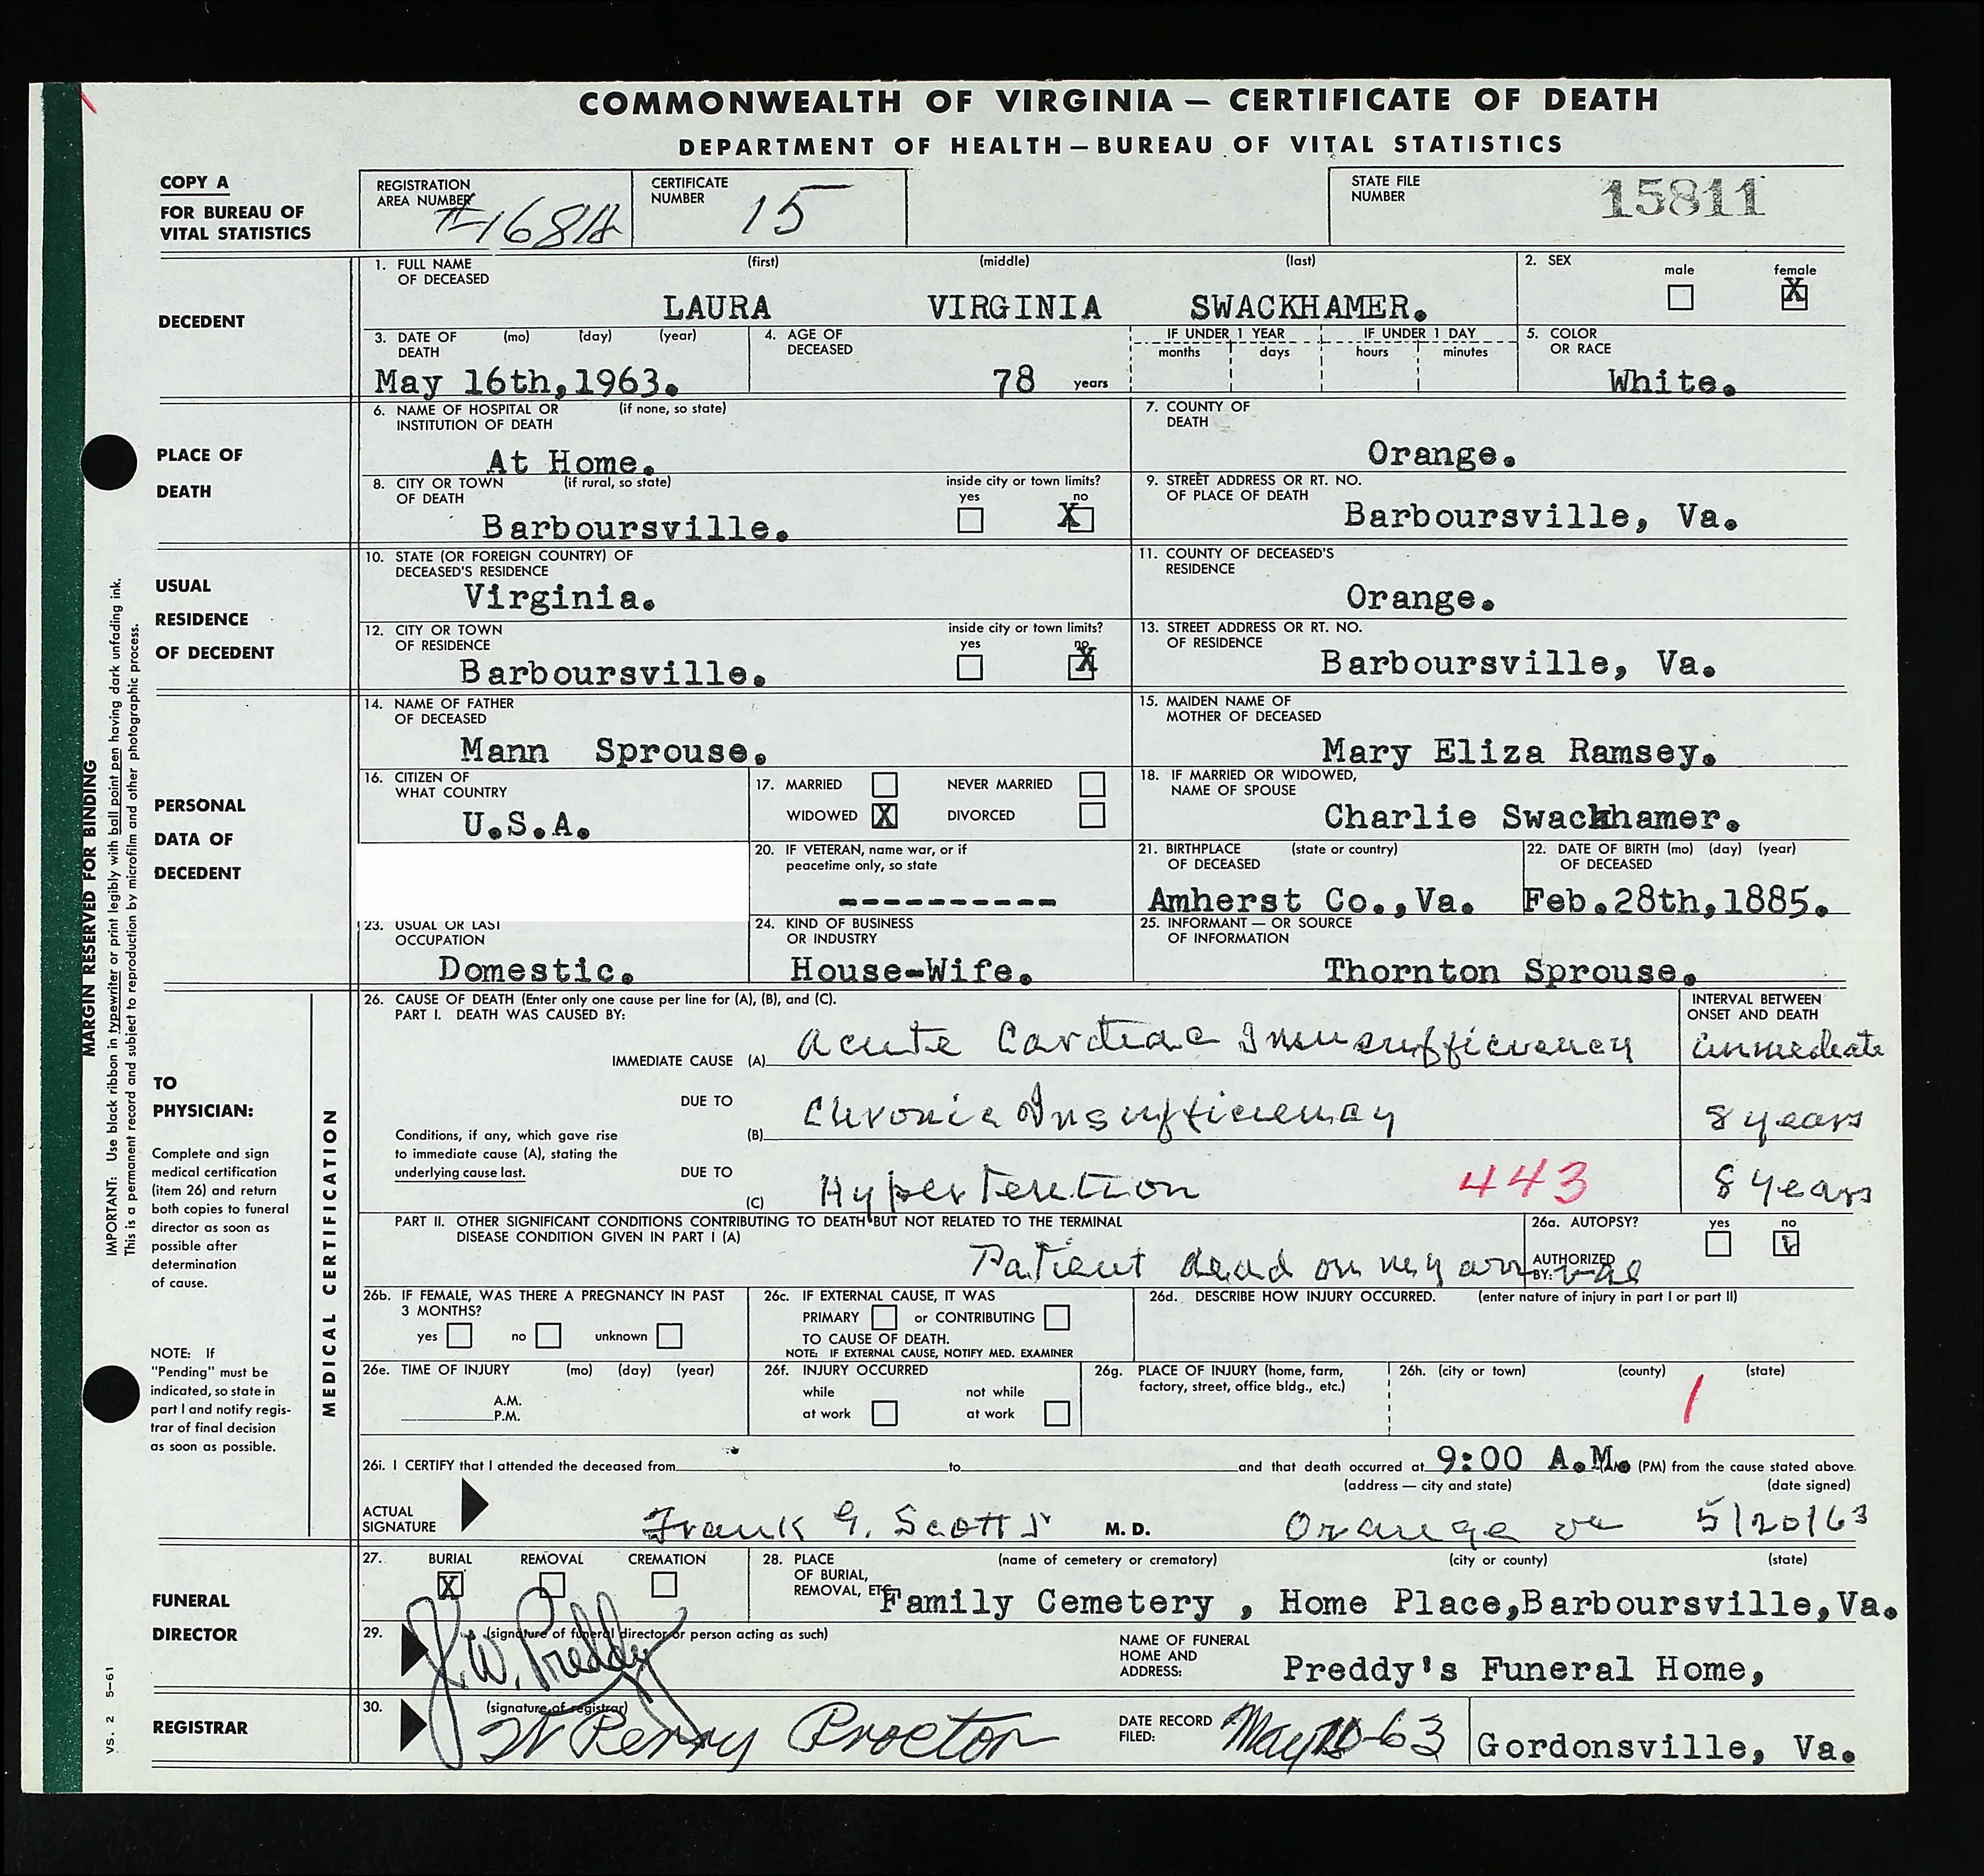 COMMONWEALTH OF VIRGINIA — CERTIFICATE OF DEATH
DEPARTMENT OF HEALTH — BUREAU OF VITAL STATISTICS
COPY A
FOR BUREAU OF
VITAL STATISTICS
REGISTRATION
AREA NUMBER
168A
CERTIFICATE
NUMBER
15
STATE FILE
NUMBER
15811
DECEDENT
1. FULL NAME
OF DECEASED
(first) (middle) (last)
LAURA VIRGINIA SWACKHAMER.
2. SEX
male female
X
3. DATE OF
DEATH
(mo) (day) (year)
May 16th,1963.
4. AGE OF
DECEASED
78 years
IF UNDER 1 YEAR
months days
IF UNDER 1 DAY
hours minutes
5. COLOR
OR RACE
White.
PLACE OF
DEATH
6. NAME OF HOSPITAL OR (if none, so state)
INSTITUTION OF DEATH
At Home.
7. COUNTY OF
DEATH
Orange.
8. CITY OR TOWN (if rural, so state)
OF DEATH
Barboursville.
inside city or town limits?
yes no
X
9. STREET ADDRESS OR RT. NO.
OF PLACE OF DEATH
Barboursville, Va.
USUAL
RESIDENCE
OF DECEDENT
10. STATE (OR FOREIGN COUNTRY) OF
DECEASED'S RESIDENCE
Virginia.
11. COUNTY OF DECEASED'S
RESIDENCE
Orange.
12. CITY OR TOWN
OF RESIDENCE
Barboursville.
inside city or town limits?
yes no
X
13. STREET ADDRESS OR RT. NO.
OF RESIDENCE
Barboursville, Va.
PERSONAL
DATA OF
DECEDENT
14. NAME OF FATHER
OF DECEASED
Mann Sprouse.
15. MAIDEN NAME OF
MOTHER OF DECEASED
Mary Eliza Ramsey.
16. CITIZEN OF
WHAT COUNTRY
U.S.A.
17. MARRIED NEVER MARRIED
WIDOWED X DIVORCED
18. IF MARRIED OR WIDOWED,
NAME OF SPOUSE
Charlie Swackhamer.
20. IF VETERAN, name war, or if
peacetime only, so state
----------
21. BIRTHPLACE (state or country)
OF DECEASED
Amherst Co.,Va.
22. DATE OF BIRTH (mo) (day) (year)
OF DECEASED
Feb.28th,1885.
23. USUAL OR LAST
OCCUPATION
Domestic.
24. KIND OF BUSINESS
OR INDUSTRY
House-Wife.
25. INFORMANT — OR SOURCE
OF INFORMATION
Thornton Sprouse.
MARGIN RESERVED FOR BINDING
IMPORTANT: Use black ribbon in typewriter or print legibly with ball point pen having dark unfading ink.
This is a permanent record and subject to reproduction by microfilm and other photographic process.
TO
PHYSICIAN:
Complete and sign
medical certification
(item 26) and return
both copies to funeral
director as soon as
possible after
determination
of cause.
NOTE: If
"Pending" must be
indicated, so state in
part I and notify regis-
trar of final decision
as soon as possible.
MEDICAL CERTIFICATION
26. CAUSE OF DEATH (Enter only one cause per line for (A), (B), and (C).
PART I. DEATH WAS CAUSED BY:
INTERVAL BETWEEN
ONSET AND DEATH
IMMEDIATE CAUSE (A) Acute Cardiac Insufficiency immediate
DUE TO
(B) Chronic Insufficiency 8 years
Conditions, if any, which gave rise
to immediate cause (A), stating the
underlying cause last.
DUE TO
(C) Hypertention 443 8 years
PART II. OTHER SIGNIFICANT CONDITIONS CONTRIBUTING TO DEATH BUT NOT RELATED TO THE TERMINAL
DISEASE CONDITION GIVEN IN PART I (A)
Patient dead on my arrival
26a. AUTOPSY? yes no
AUTHORIZED
BY:
26b. IF FEMALE, WAS THERE A PREGNANCY IN PAST
3 MONTHS?
yes no unknown
26c. IF EXTERNAL CAUSE, IT WAS
PRIMARY or CONTRIBUTING
TO CAUSE OF DEATH.
NOTE: IF EXTERNAL CAUSE, NOTIFY MED. EXAMINER
26d. DESCRIBE HOW INJURY OCCURRED. (enter nature of injury in part I or part II)
26e. TIME OF INJURY (mo) (day) (year)
A.M.
P.M.
26f. INJURY OCCURRED
while not while
at work at work
26g. PLACE OF INJURY (home, farm,
factory, street, office bldg., etc.)
26h. (city or town) (county) (state)
1
26i. I CERTIFY that I attended the deceased from to and that death occurred at 9:00 A.M. (PM) from the cause stated above.
(address — city and state) (date signed)
ACTUAL
SIGNATURE
Frank G. Scott Jr M. D. Orange va 5/20/63
FUNERAL
DIRECTOR
27. BURIAL REMOVAL CREMATION
X
28. PLACE
OF BURIAL,
REMOVAL, ETC.
(name of cemetery or crematory) (city or county) (state)
Family Cemetery , Home Place,Barboursville,Va.
29. (signature of funeral director or person acting as such)
J.W. Preddy
NAME OF FUNERAL
HOME AND
ADDRESS:
Preddy's Funeral Home,
REGISTRAR
30. (signature of registrar)
W Perry Proctor
DATE RECORD
FILED:
May 20-63
Gordonsville, Va.
VS. 2 5-61